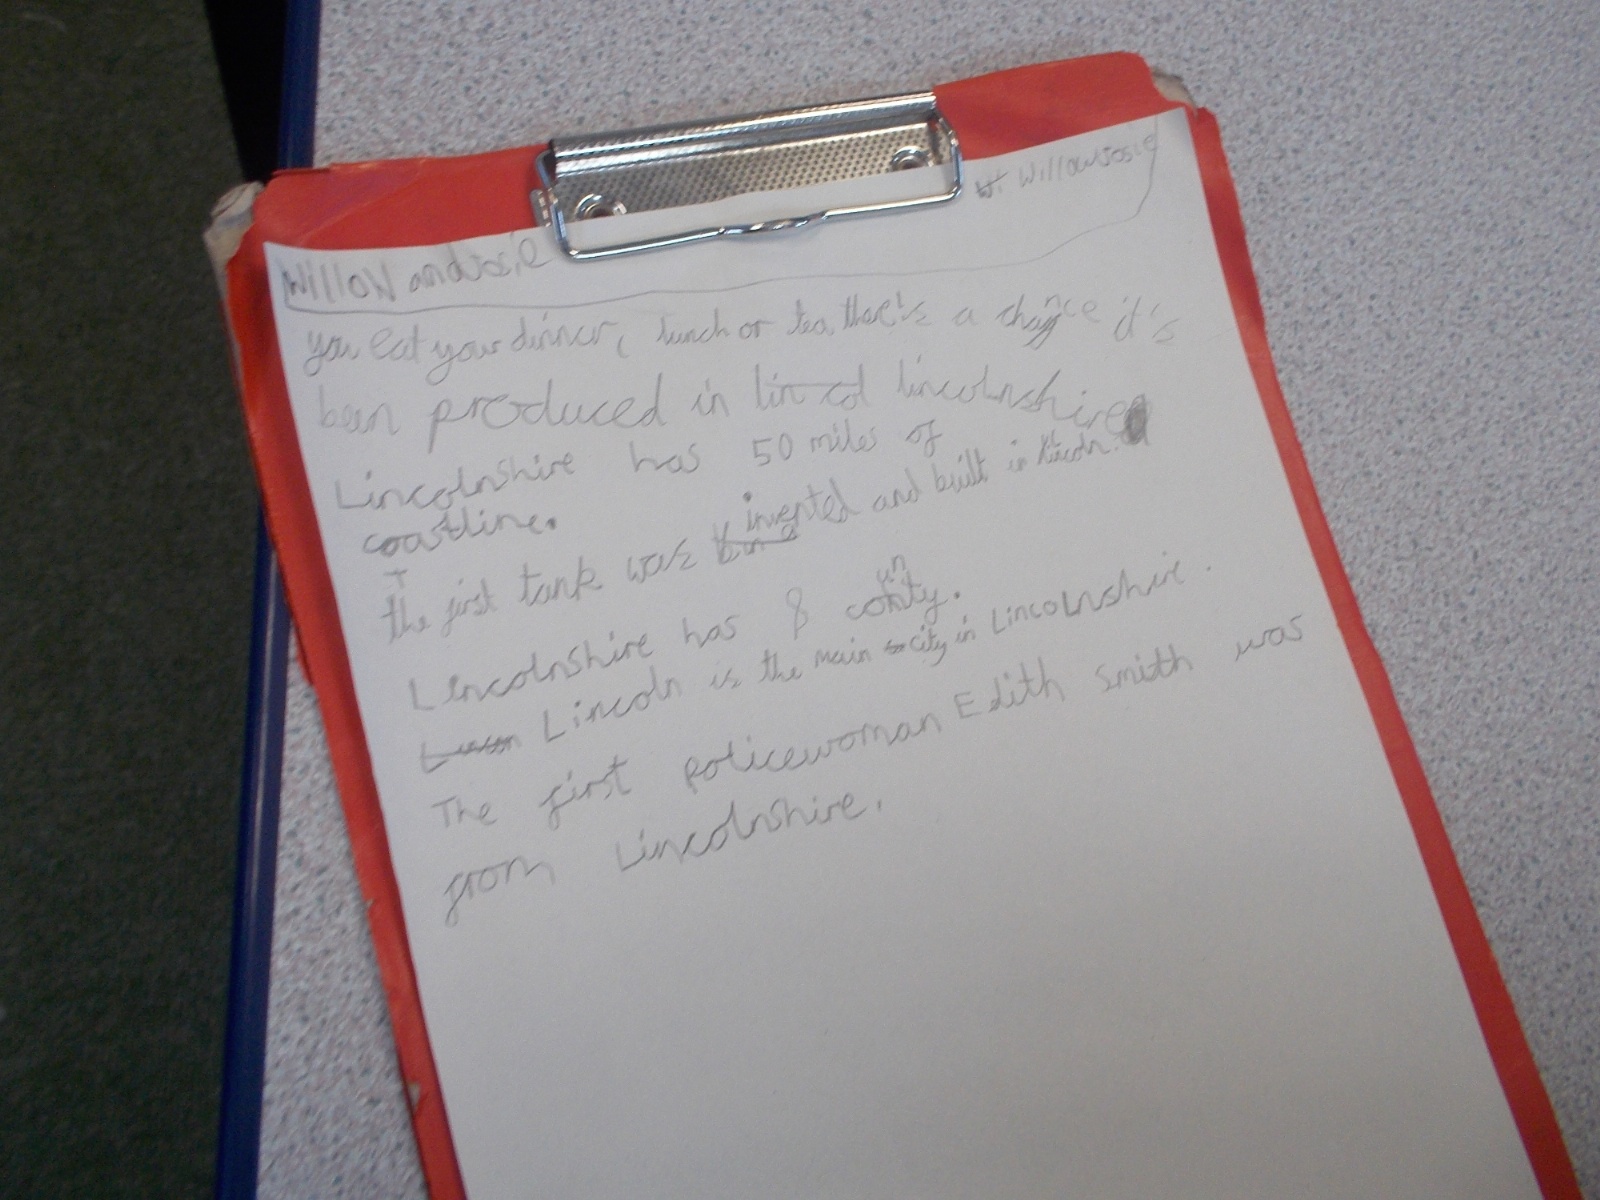 Willow Josie
Willow and Josie
you eat your dinner, lunch or tea, there's a chance it's
been produced in lincol lincolnshire
Lincolnshire has 50 miles of
coastline.
The first tank was invented and built in lincoln.
Lincolnshire has 8 county.
Lincoln is the main city in Lincolnshire.
The first policewoman Edith Smith was
from Lincolnshire.